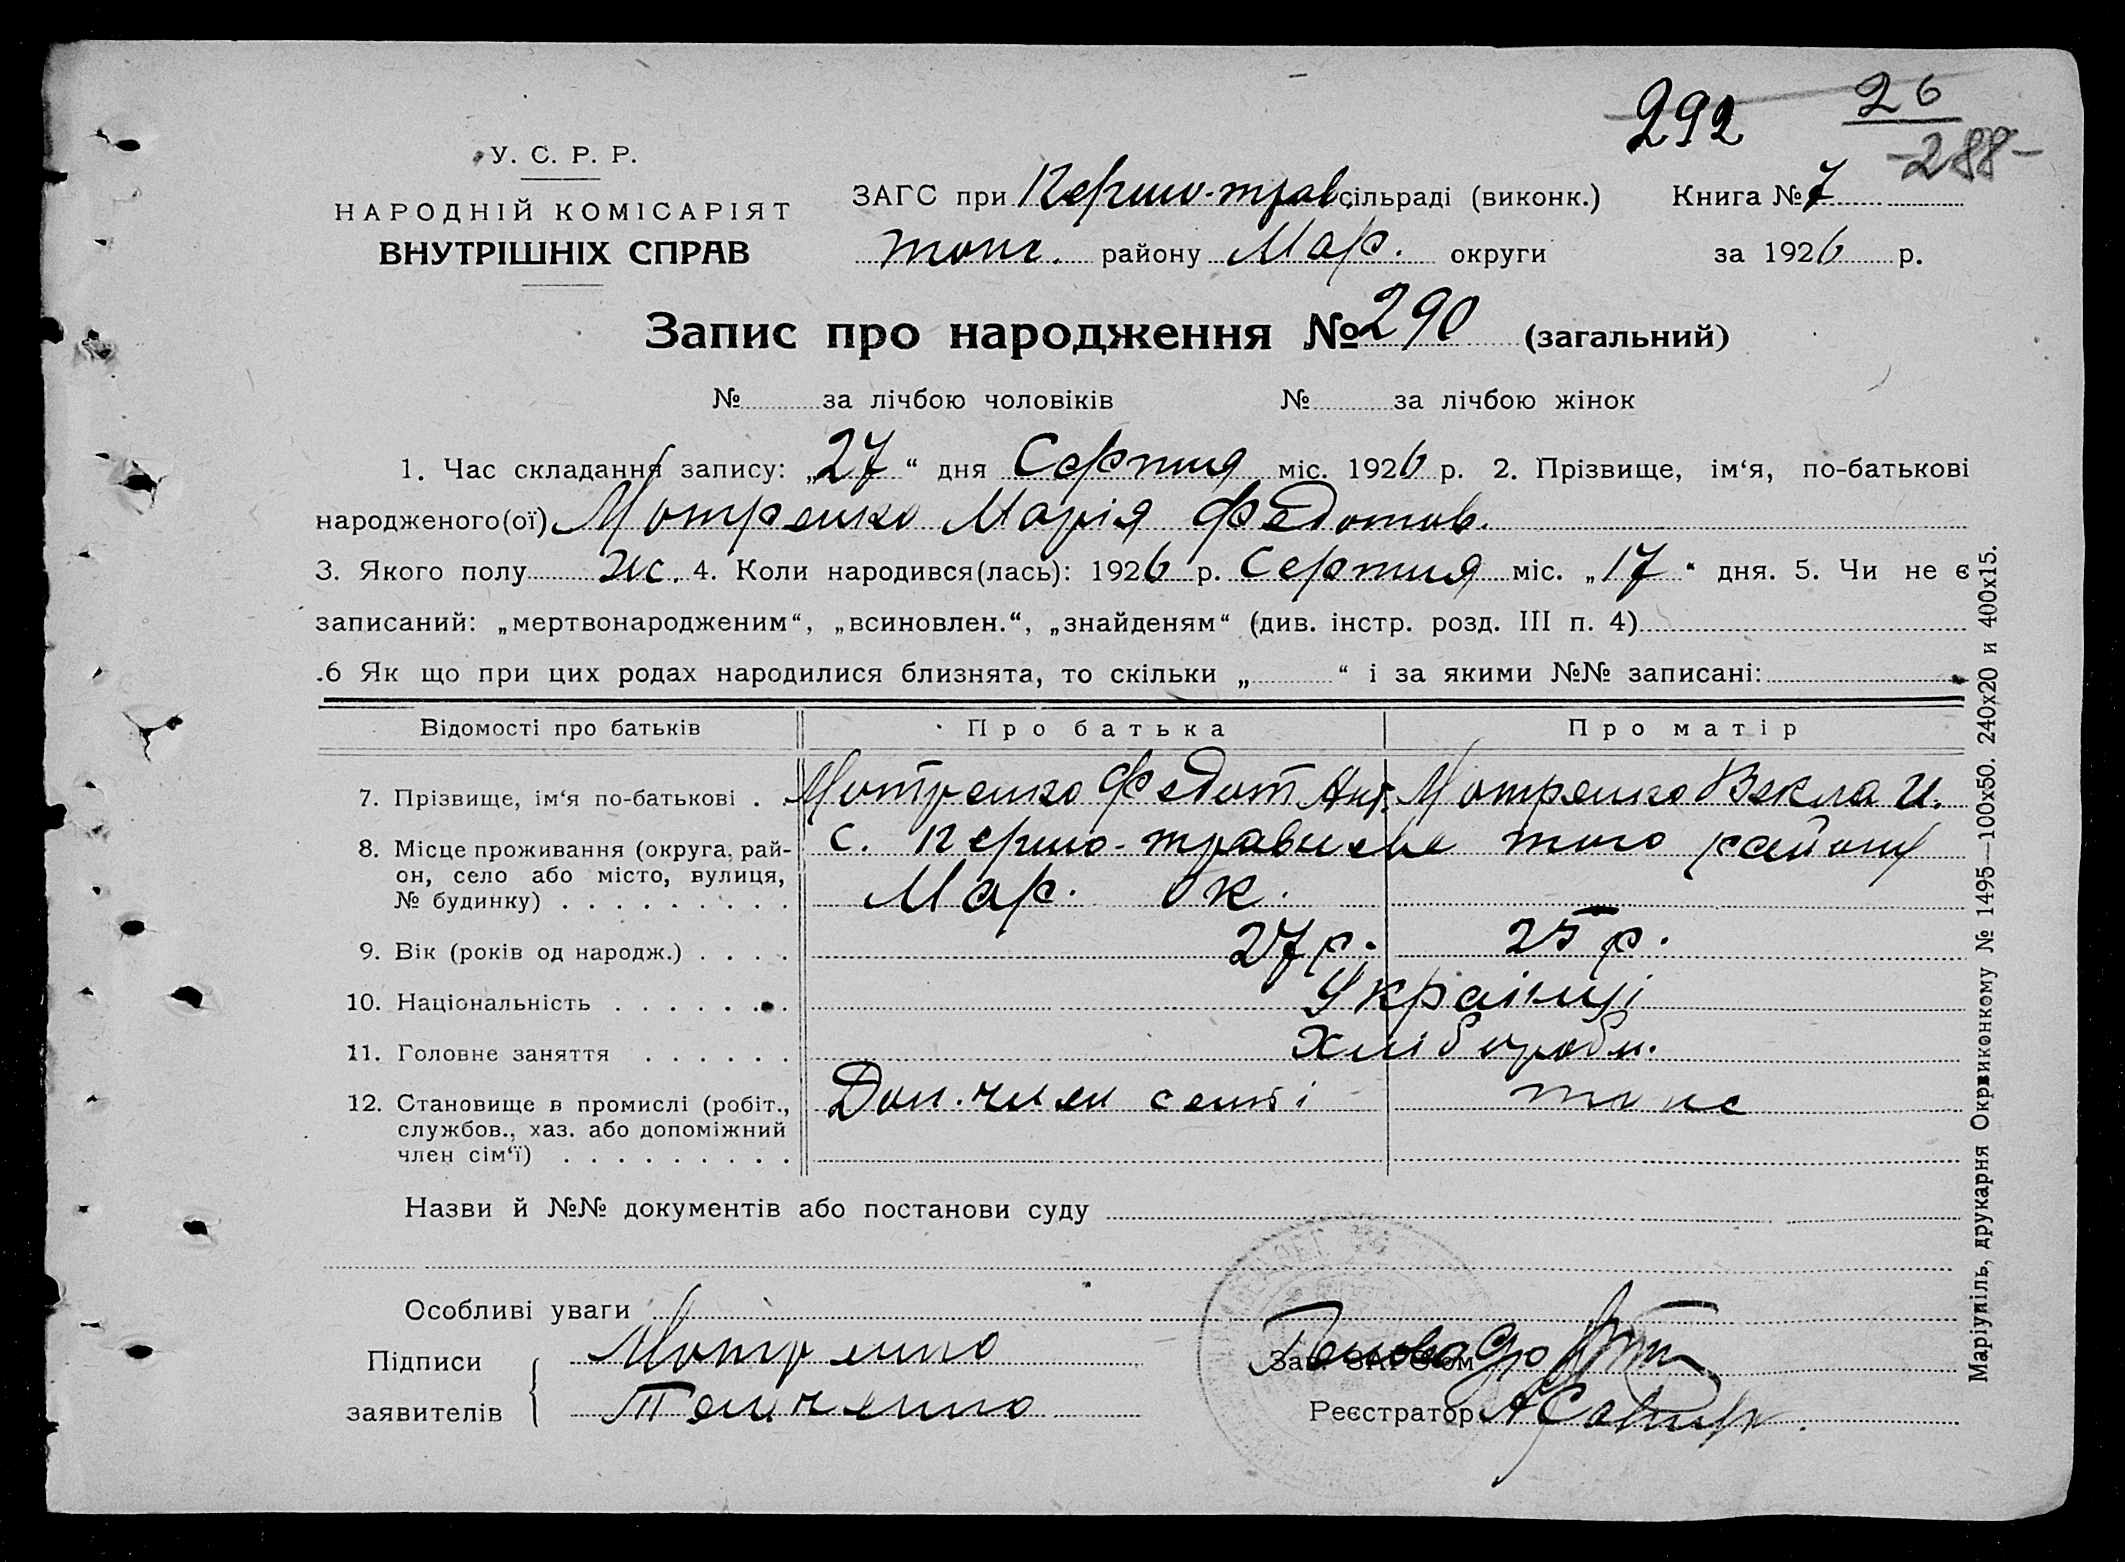 292 26
-288-
У. С. Р. Р.
НАРОДНІЙ КОМІСАРІЯТ
ВНУТРІШНІХ СПРАВ
ЗАГС при Першо-трав. сільраді (виконк.) Книга № 7
того району Мар. округи за 1926 р.
Запис про народження № 290 (загальний)
№ за лічбою чоловіків № за лічбою жінок
1. Час складання запису: „27“ дня Серпня міс. 1926 р. 2. Прізвище, ім‘я, по-батькові
народженого(ої) Мотренко Марія Федотов.
3. Якого полу жс. 4. Коли народився(лась): 1926 р. Серпня міс. „17“ дня. 5. Чи не є
записаний: „мертвонародженим“, „всиновлен.“, „знайденям“ (див. інстр. розд. III п. 4)
.6 Як що при цих родах народилися близнята, то скільки „ “ і за якими №№ записані:
Відомості про батьків Про батька Про матір
7. Прізвище, ім‘я по-батькові . . Мотренко Федот Мотренко Векла И.
8. Місце проживання (округа, рай-
он, село або місто, вулиця,
№ будинку) . . . . . . . . . с. Першо-травневе того району
Мар. ок.
9. Вік (років од народж.) . . . . 27 р. 25 р.
10. Національність . . . . . . . Українці
11. Головне заняття . . . . . . Хлібороби.
12. Становище в промислі (робіт.,
службов., хаз. або допоміжний
член сім‘ї) . . . . . . . . . Доп. член семї тоже
Назви й №№ документів або постанови суду
Особливі уваги
Підписи Мотренко
заявителів Темченко
Зав. ЗАГС‘ом Голова
Реєстратор
Маріупіль, друкарня Окрвиконкому № 1495—100х50. 240х20 и 400х15.